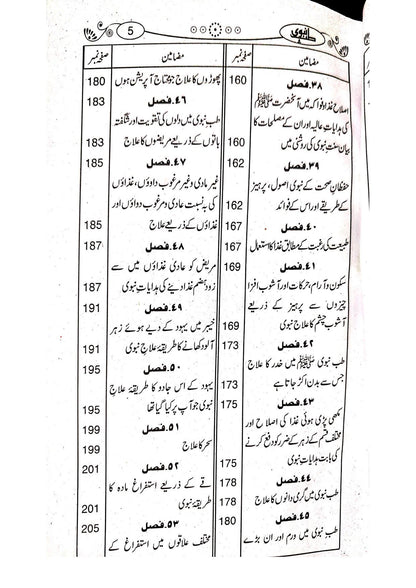 5
طب نبوی
مضامین صفحہ نمبر
۳۸.فصل 160
اصلاح غذا و فواکہ میں آنحضرت ﷺ
کی ہدایات عالیہ اور ان کے مصلحات کا
بیان سنت نبوی کی روشنی میں
۳۹.فصل 162
حفظان صحت کے نبوی اصول، پرہیز
کے طریقے اور اس کے فوائد 162
۴۰.فصل 167
طبیعت کی رغبت کے مطابق غذا کا استعمال 167
۴۱.فصل 169
سکون و آرام، حرکات اور آشوب افزا
چیزوں سے پرہیز کے ذریعے
آشوب چشم کا علاج نبوی 169
۴۲.فصل 173
طب نبوی ﷺ میں خدر کا علاج
جس سے بدن اکڑ جاتا ہے 173
۴۳.فصل
مکھی پڑی ہوئی غذا کی اصلاح اور
مختلف قسم کے زہر کے ضرر کو دفع کرنے
کی بابت ہدایات نبوی 175
۴۴.فصل 178
طب نبوی میں گرمی دانوں کا علاج 178
۴۵.فصل 180
طب نبوی میں ورم اور ان بڑے
مضامین صفحہ نمبر
پھوڑوں کا علاج جو محتاج آپریشن ہوں 180
۴۶.فصل 183
طب نبوی میں دلوں کی تقویت اور شگفتہ
باتوں کے ذریعے مریضوں کا علاج 183
۴۷.فصل 185
غیر عادی وغیر مرغوب داوؤں، غذاؤں
کی بہ نسبت عادی و مرغوب دواوں اور
غذاؤں کے ذریعے علاج 185
۴۸.فصل 187
مریض کو عادی غذاؤں میں سے
زود ہضم غذا دینے کی ہدایات نبوی 187
۴۹.فصل 191
خیبر میں یہود کے دیے ہوئے زہر
آلود کھانے کا طریقۂ علاج نبوی 191
۵۰.فصل 195
یہود کے اس جادو کا طریقۂ علاج
نبوی جو آپ پر کیا گیا تھا 195
۵۱.فصل 199
سحر کا علاج 199
۵۲.فصل 201
قے کے ذریعے استفراغ مادہ کا
طریقۂ نبوی 201
۵۳.فصل 205
مختلف علاقوں میں استفراغ کے